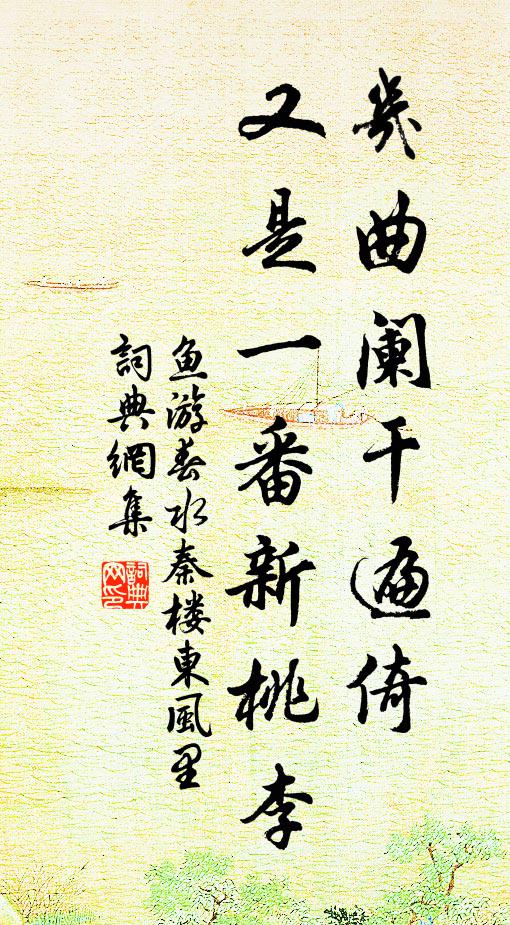 几曲阑干遍倚
又是一番新桃李
鱼游春水秦楼東風里
詞典網集
詞典网印